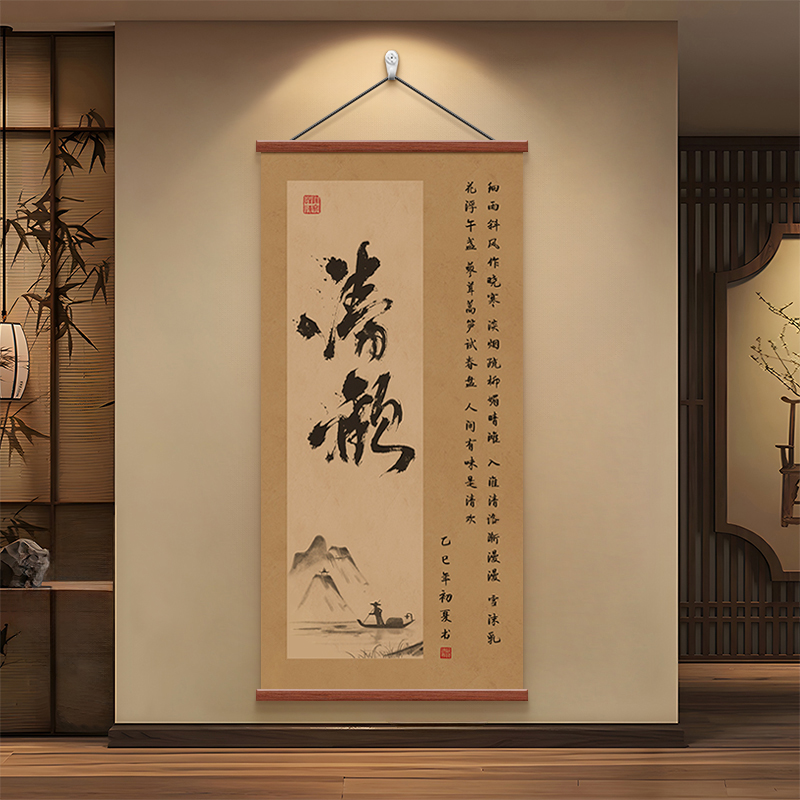 细雨斜风作晓寒 淡烟疏柳媚晴滩 入淮清洛渐漫漫 雪沫乳
花浮午盏 蓼茸蒿笋试春盘 人间有味是清欢
乙巳年初夏书
清歡